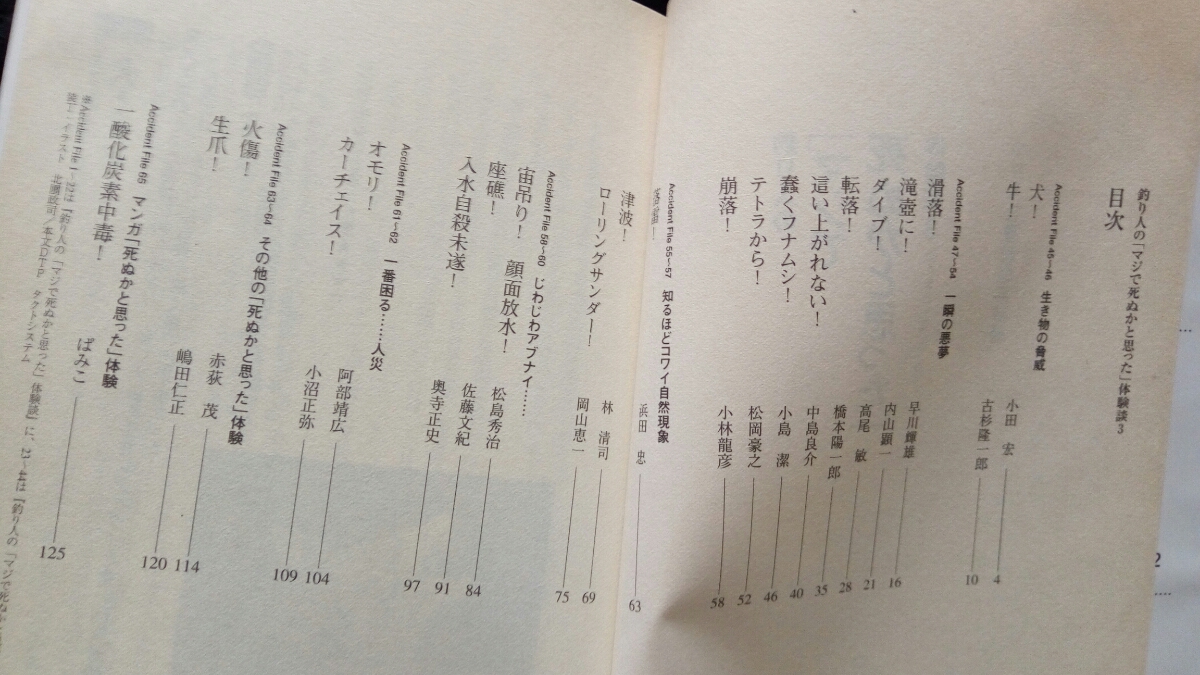 釣り人の「マジで死ぬかと思った」体験談3
目次
Accident File 45〜46 生き物の脅威
犬! 小田 宏 4
牛! 古杉隆一郎 10
Accident File 47〜54 一瞬の悪夢
滑落! 早川輝雄 16
滝壺に! 内山顕一 21
ダイブ! 高尾 敏 28
転落! 橋本陽一郎 35
這い上がれない! 中島良介 40
蠢くフナムシ! 小島 潔 46
テトラから! 松岡豪之 52
崩落! 小林龍彦 58
Accident File 55〜57 知るほどコワイ自然現象
浜田 忠 63
津波! 林 清司 69
ローリングサンダー! 岡山恵一 75
Accident File 58〜60 じわじわアブナイ……
宙吊り! 顔面放水! 松島秀治 84
座礁! 佐藤文紀 91
入水自殺未遂! 奥寺正史 97
Accident File 61〜62 一番困る……人災
オモリ! 阿部靖広 104
カーチェイス! 小沼正弥 109
Accident File 63〜64 その他の「死ぬかと思った」体験
火傷! 赤荻 茂 114
生爪! 嶋田仁正 120
Accident File 65 マンガ「死ぬかと思った」体験
一酸化炭素中毒! ばみこ 125
※Accident File 1〜22は『釣り人の「マジで死ぬかと思った」体験談』に、23〜44は『釣り人の「マジで死ぬか
装丁・イラスト 北圃政司/本文DTP タクトシステム
2